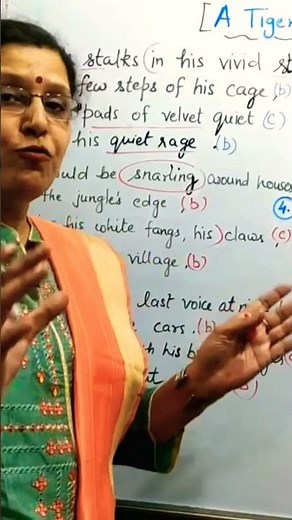 [A Tiger
stalks in his vivid
few steps of his cage, (b)
pads of velvet quiet (c)
his quiet rage. (b)
be snarling around houses
the jungle's edge, (b)
4.
his white fangs, his claws, (c)
village. (b)
last voice at
cars. (b)
his
(b)